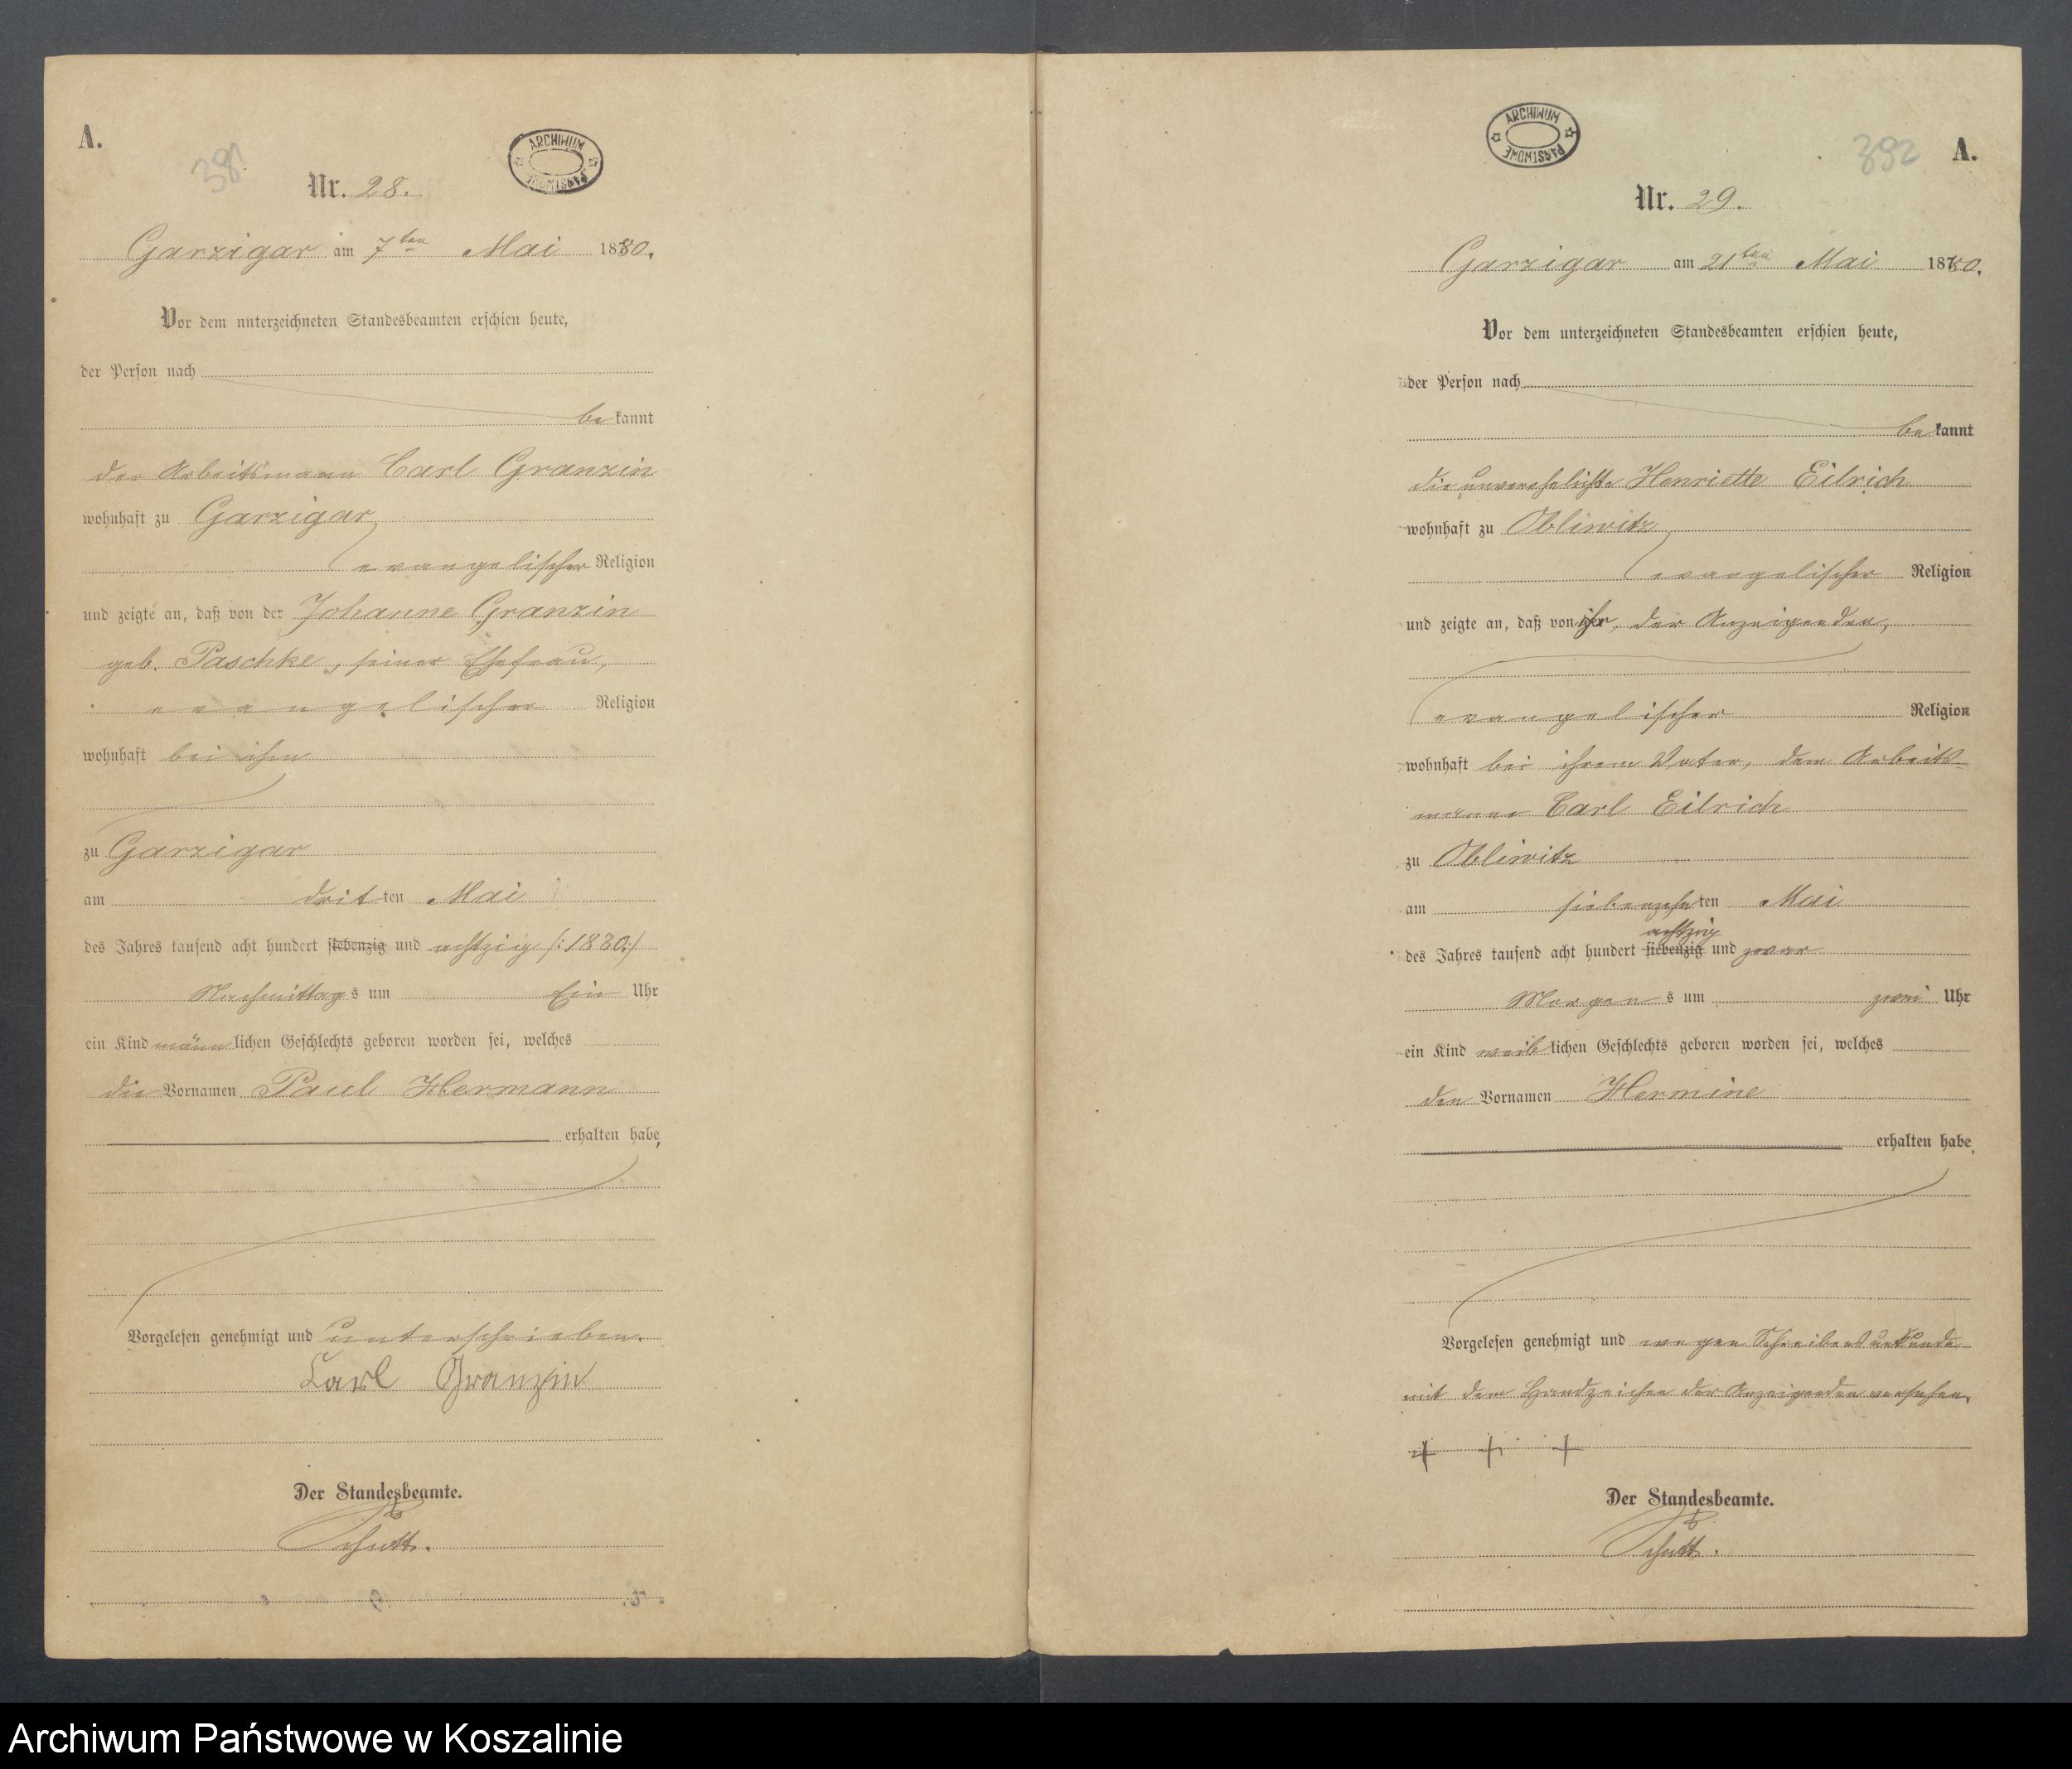 A.
381
ARCHIWUM PAŃSTWOWE
Nr. 28.
Garzigar am 7ten Mai 1880.
Vor dem unterzeichneten Standesbeamten erschien heute,
der Person nach
bekannt
der Arbeitsmann Carl Granzin
wohnhaft zu Garzigar,
evangelischer Religion
und zeigte an, daß von der Johanne Granzin
geb. Paschke, seiner Ehefrau,
evangelischer Religion
wohnhaft bei ihm
zu Garzigar
am dritten Mai
des Jahres tausend acht hundert siebenzig und achtzig /:1880:/
Nachmittags um Ein Uhr
ein Kind männlichen Geschlechts geboren worden sei, welches
die Vornamen Paul Hermann
erhalten habe,
Vorgelesen genehmigt und unterschrieben.
Carl Granzin
Der Standesbeamte.
ARCHIWUM PAŃSTWOWE
382
A.
Nr. 29.
Garzigar am 21ten Mai 1880.
Vor dem unterzeichneten Standesbeamten erschien heute,
der Person nach
bekannt
die unverehelichte Henriette Eilrich
wohnhaft zu Obliwitz,
evangelischer Religion
und zeigte an, daß von ihr, der Anzeigenden,
evangelischer Religion
wohnhaft bei ihrem Vater, dem Arbeits-
manne Carl Eilrich
zu Obliwitz
am siebenzehnten Mai
achtzig
des Jahres tausend acht hundert siebenzig und zwar
Morgens um zwei Uhr
ein Kind weiblichen Geschlechts geboren worden sei, welches
den Vornamen Hermine
erhalten habe.
Vorgelesen genehmigt und wegen Schreibensunkunde
mit dem Handzeichen der Anzeigenden versehen.
+ + +
Der Standesbeamte.
Archiwum Państwowe w Koszalinie